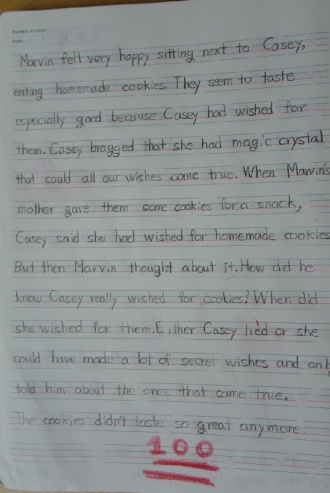 Number of page
Date
Marvin felt very happy sitting next to Casey,
eating homemade cookies. They seem to taste
especially good because Casey had wished for
them. Casey bragged that she had magic crystal
that could all our wishes come true. When Marvin's
mother gave them some cookies for a snack,
Casey said she had wished for homemade cookies
But then Marvin thought about it. How did he
know Casey really wished for cookies? When did
she wished for them. Either Casey lied or she
could have made a lot of secret wishes and only
told him about the ones that came true.
The cookies didn't taste so great anymore.
100